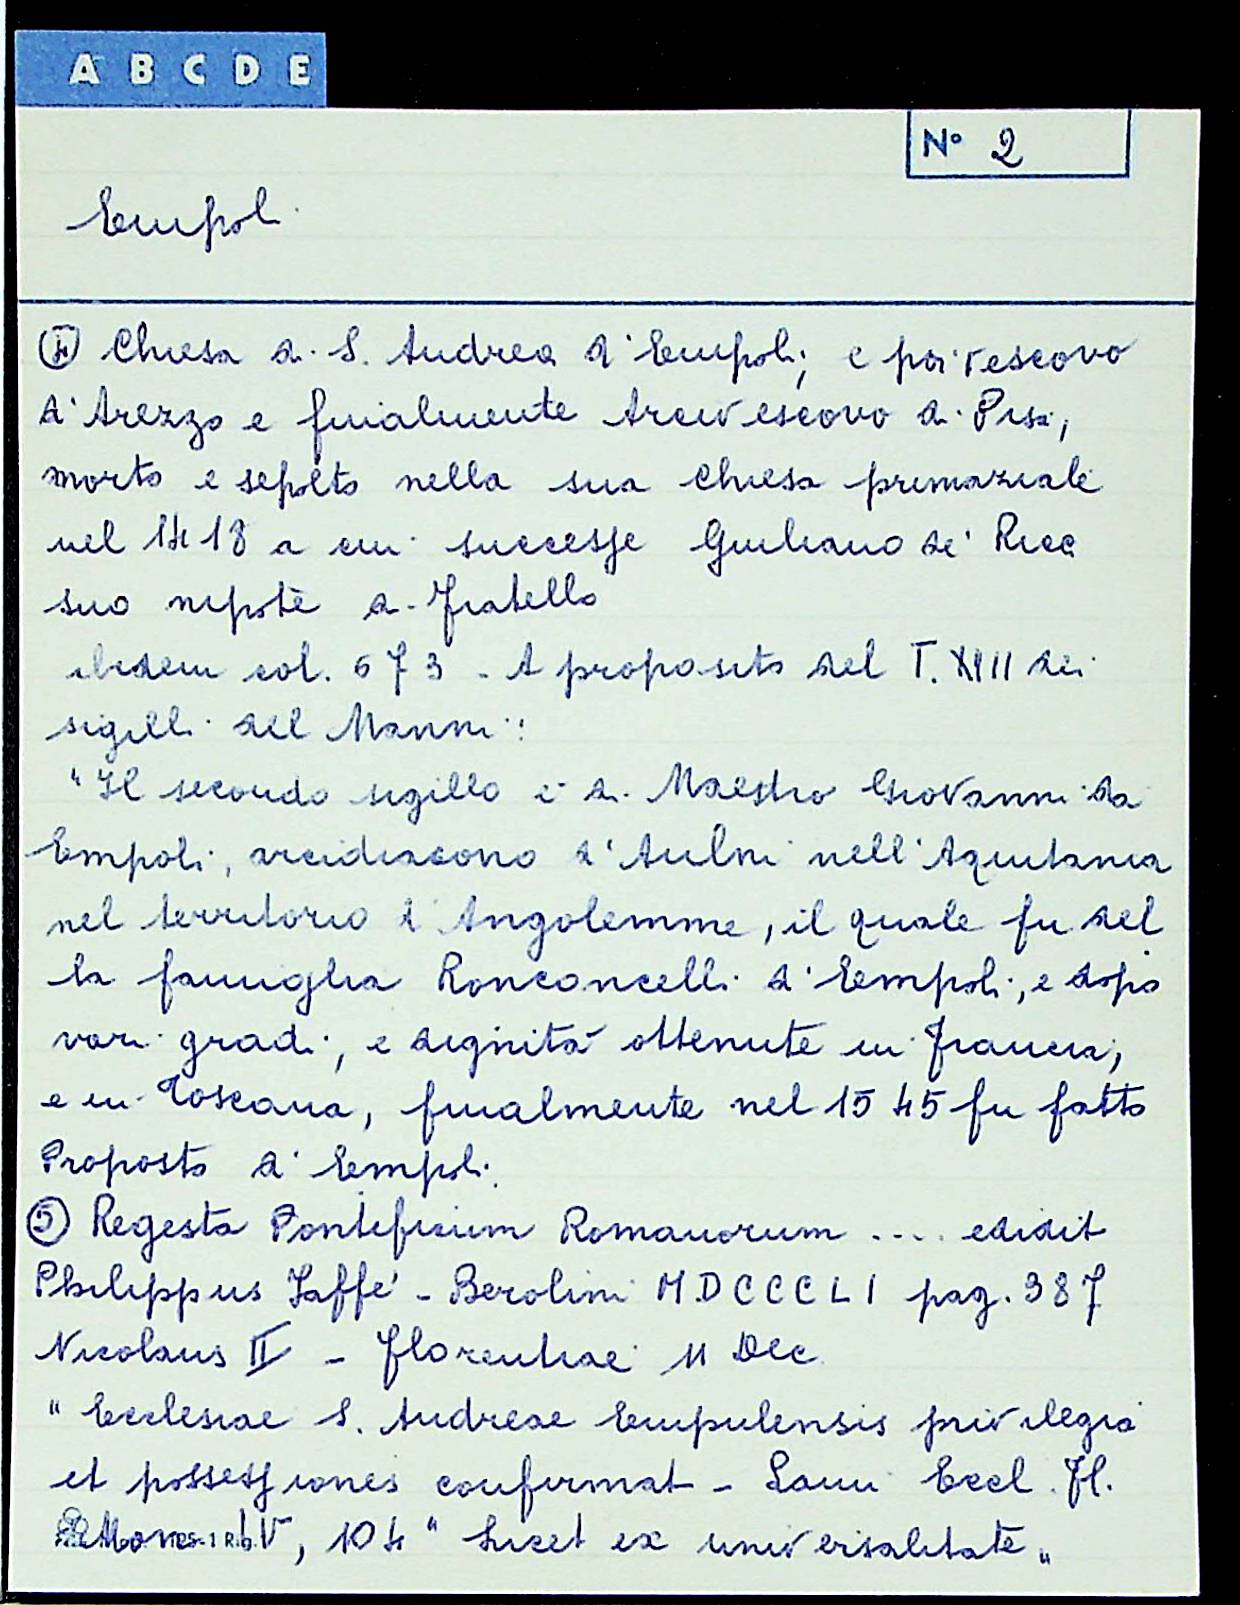 A B C D E
N° 2
Empoli
④ Chiesa di S. Andrea d'Empoli; e poi vescovo
d'Arezzo e finalmente Arcivescovo di Pisa,
morto e sepolto nella sua chiesa primaziale
nel 1418 a cui successe Giuliano de' Ricci
suo nipote di fratello
ibidem col. 673 - A proposito del T. XIII dei
sigilli del Manni:
"Il secondo sigillo è di Maestro Giovanni da
Empoli, arcidiacono d'Aulni nell'Aquitania
nel territorio d'Angolemme, il quale fu del
la famiglia Ronconcelli d'Empoli, e dopo
vari gradi, e dignità ottenute in Francia,
e in Toscana, finalmente nel 1545 fu fatto
Proposto d'Empoli.
⑤ Regesta Pontificium Romanorum .... edidit
Philippus Jaffé - Berolini MDCCCLI pag. 387
Nicolaus II - Florentiae 11 Dec
"Ecclesiae S. Andreae Empulensis privilegia
et possessiones confirmat - Lami Eccl. Fl.
Mon. IV, 104 "Licet ex universalitate"